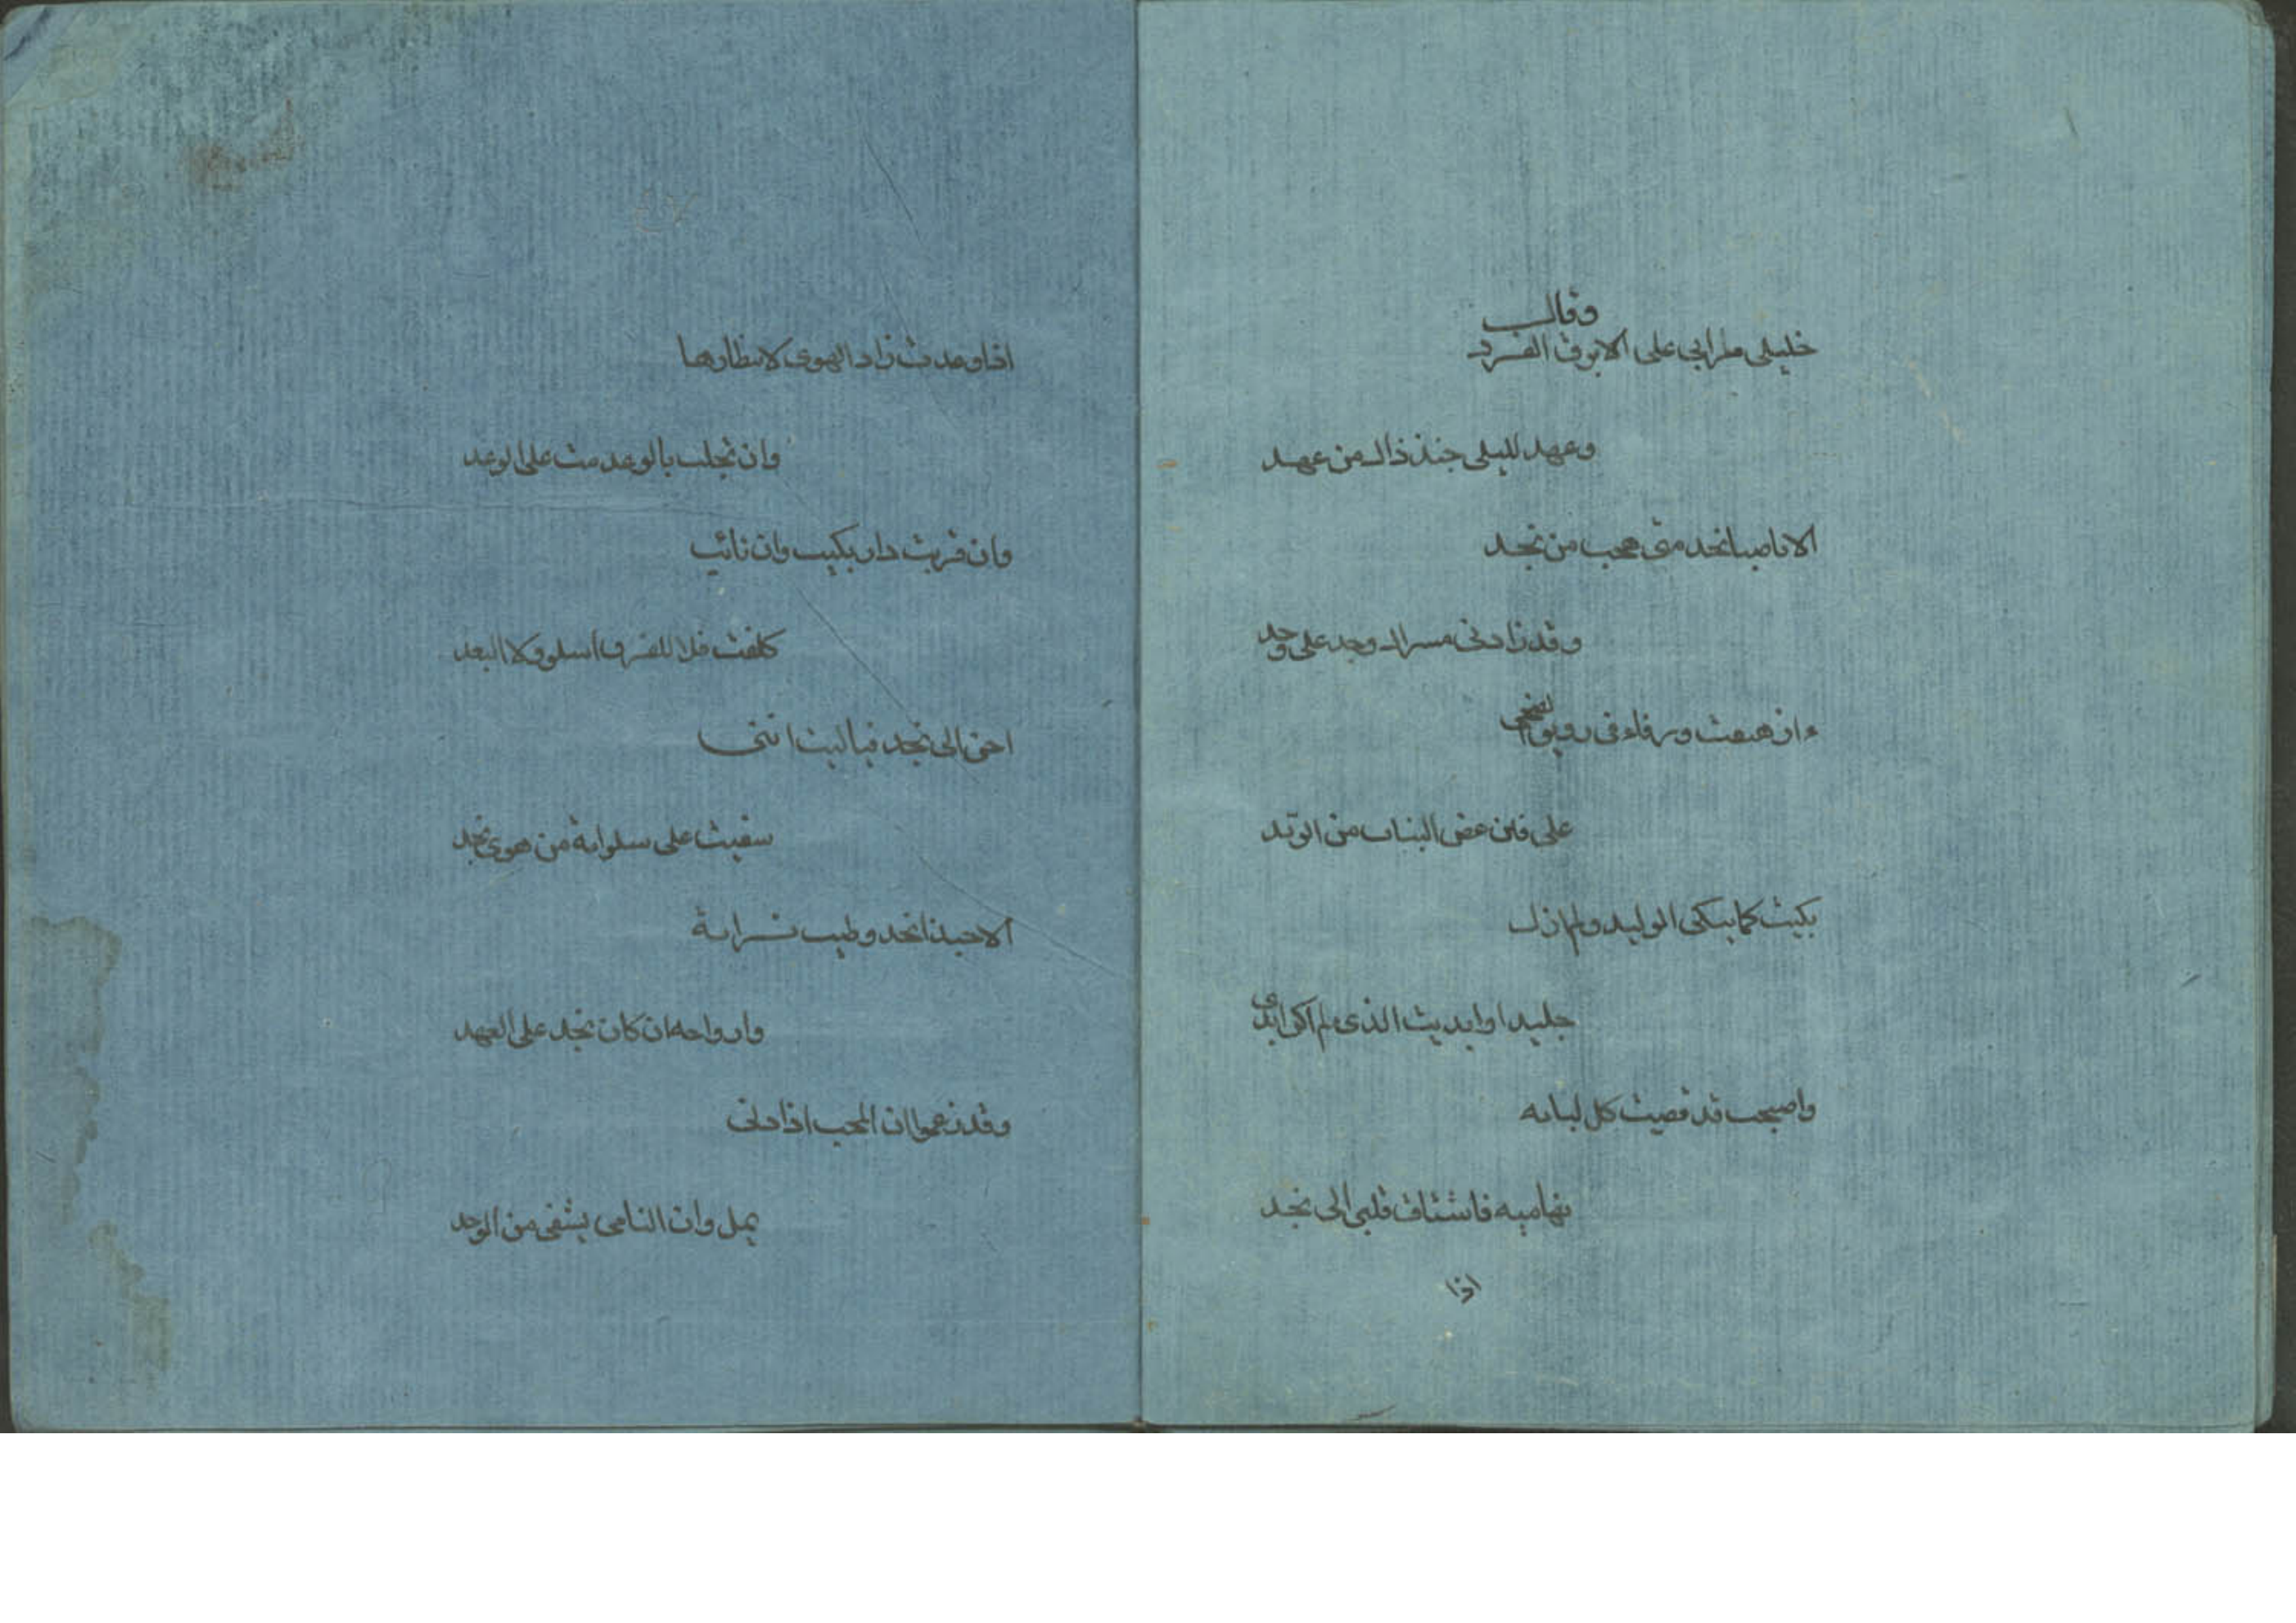 وقال
خليلي مرا بي على الابرق الفرد
وعهد لليلى حبذا ذاك من عهد
الا ياصبا نجد متى هجت من نجد
وقد زادنى مسراك وجد على وجد
ءان هتفت ورقاء فى رونق الضحى
على فنن غض النبات من الرند
بكيت كما يبكى الوليد ولم ازل
جليدا وابديت الذى لم اكن ابدى
واصبحت قد قضيت كل لبانه
تهاميه فاشتاق قلبى الى نجد
اذا
٤٧
اذا وعدت زاد الهوى لانتظارها
وان بخلت بالوعد مت على الوعد
وان قربت دار بكيت وان نائت
كلفت فلا للقرب اسلو ولا البعد
احن الى نجد فياليت اننى
سقيت على سلوانة من هوى نجد
الا حبذا نجد وطيب ترابة
وارواحه ان كان نجد على العهد
وقد زعموا ان المحب اذا دنى
يمل وان الناى يشفى من الوجد